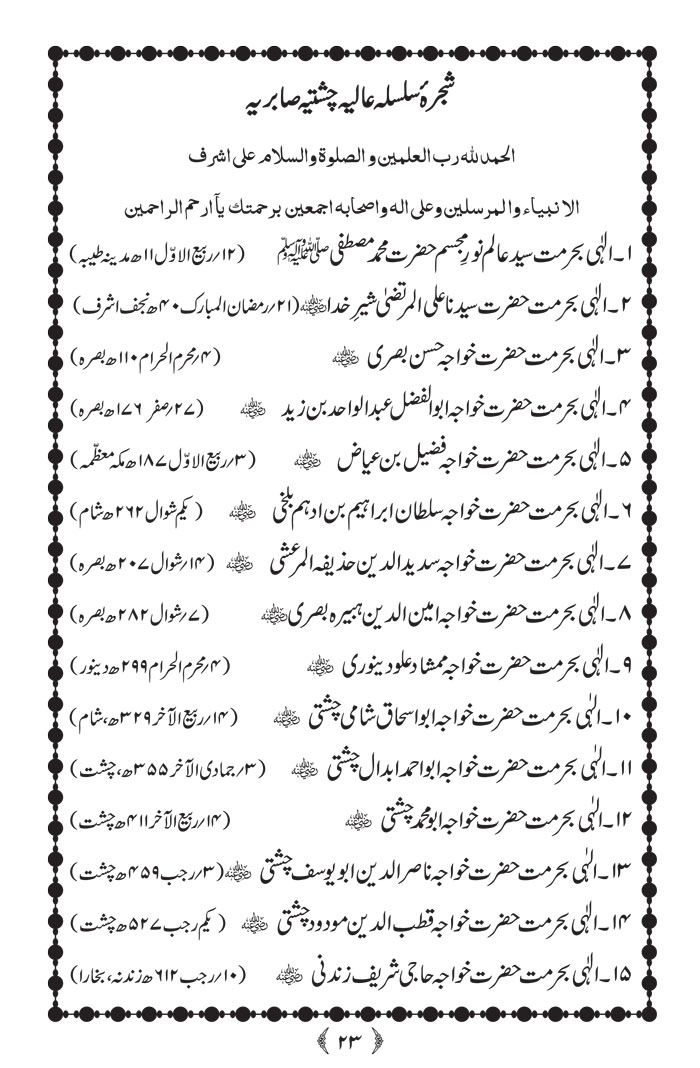 شجرۂ سلسلہ عالیہ چشتیہ صابریہ
الحمدللہ رب العلمین و الصلوۃ والسلام علی اشرف
الانبیاء والمرسلین وعلی الہ واصحابہ اجمعین برحمتك یآارحم الراحمین
۱۔الٰہی بحرمت سید عالم نورِ مجسم حضرت محمد مصطفٰی ﷺ (۱۲؍ربیع الاوّل ۱۱ھ مدینہ طیبہ)
۲۔الٰہی بحرمت حضرت سیدنا علی المرتضیٰ شیرِ خدا رضی اللہ عنہ (۲۱؍رمضان المبارک ۴۰ھ نجف اشرف)
۳۔الٰہی بحرمت حضرت خواجہ حسن بصری رضی اللہ عنہ (۴؍محرم الحرام ۱۱۰ھ بصرہ)
۴۔الٰہی بحرمت حضرت خواجہ ابوالفضل عبدالواحد بن زید رضی اللہ عنہ (۲۷؍صفر ۱۷۶ھ بصرہ)
۵۔الٰہی بحرمت حضرت خواجہ فضیل بن عیاض رضی اللہ عنہ (۳؍ربیع الاوّل ۱۸۷ھ مکہ معظّمہ)
۶۔الٰہی بحرمت حضرت خواجہ سلطان ابراہیم بن ادہم بلخی رضی اللہ عنہ (یکم شوال ۲۶۲ھ شام)
۷۔الٰہی بحرمت حضرت خواجہ سدید الدین حذیفہ المرعشی رضی اللہ عنہ (۱۴؍شوال ۲۰۷ھ بصرہ)
۸۔الٰہی بحرمت حضرت خواجہ امین الدین ہبیرہ بصری رضی اللہ عنہ (۷؍شوال ۲۸۲ھ بصرہ)
۹۔الٰہی بحرمت حضرت خواجہ ممشاد علو دینوری رضی اللہ عنہ (۴؍محرم الحرام ۲۹۹ھ دینور)
۱۰۔الٰہی بحرمت حضرت خواجہ ابواسحاق شامی چشتی رضی اللہ عنہ (۱۴؍ربیع الآخر ۳۲۹ھ، شام)
۱۱۔الٰہی بحرمت حضرت خواجہ ابواحمد ابدال چشتی رضی اللہ عنہ (۳؍جمادی الآخر ۳۵۵ھ، چشت)
۱۲۔الٰہی بحرمت حضرت خواجہ ابومحمد چشتی رضی اللہ عنہ (۱۴؍ربیع الآخر ۴۱۱ھ چشت)
۱۳۔الٰہی بحرمت حضرت خواجہ ناصر الدین ابو یوسف چشتی رضی اللہ عنہ (۳؍رجب ۴۵۹ھ چشت)
۱۴۔الٰہی بحرمت حضرت خواجہ قطب الدین مودود چشتی رضی اللہ عنہ (یکم رجب ۵۲۷ھ چشت)
۱۵۔الٰہی بحرمت حضرت خواجہ حاجی شریف زندنی رضی اللہ عنہ (۱۰؍رجب ۶۱۲ھ زندنہ، بخارا)
﴿۲۳﴾